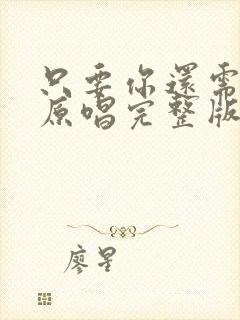 只要你還需
原唱完整版
廖星